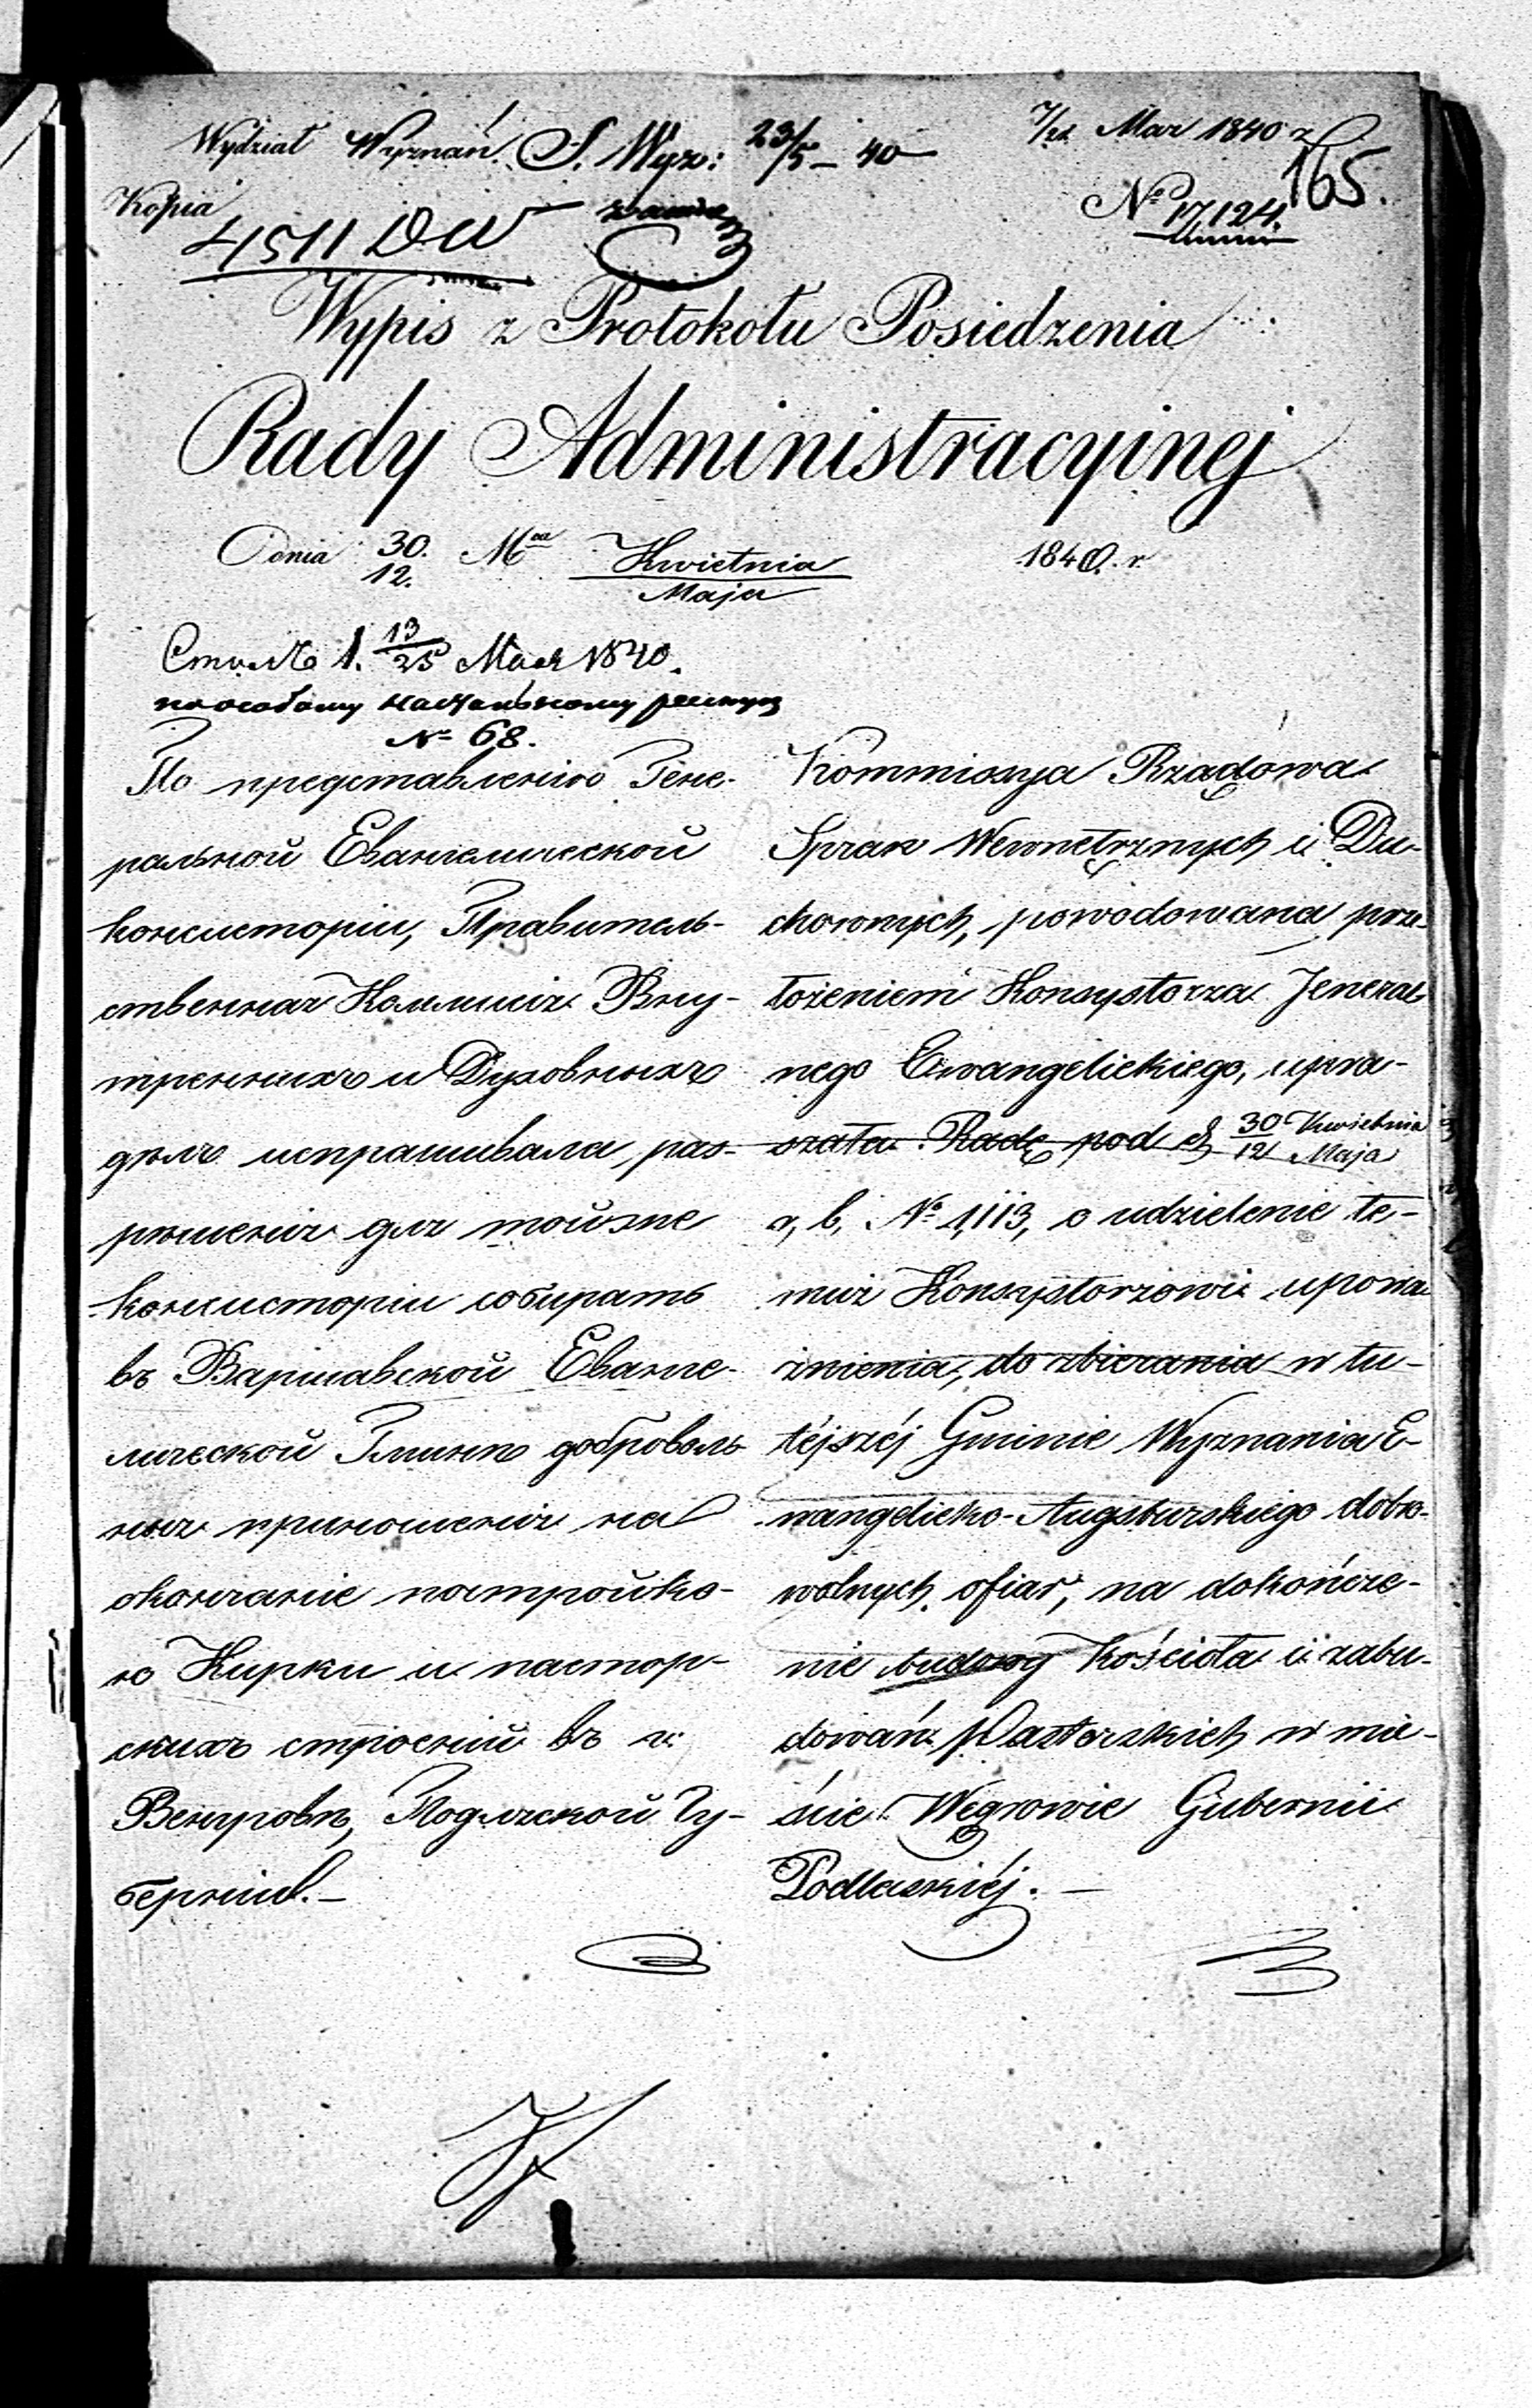 Wydział Wyznań. S. Wyz: 23/5 – 40
7/21 Mar 1840 r
165.
Kopia
No 17,124.
4511 DW
Wypis z Protokołu Posiedzenia
Rady Administracyinej
Dnia 30./12. Mca Kwietnia/Maja 1840. r.
Ст. № 1. 13/25 Мая 1840.
по особому
№ 68.
По представленію Гене-
ральной Евангелической
Консисторіи, Правитель-
ственная Коммисія Вну-
треннихъ и Духовныхъ
дѣлъ испрашивала, раз-
рѣшенія для тойже
Консисторіи собирать
въ Варшавской Еванге-
лической Гминѣ доброволь
ныя приношенія на
окончаніе постройко-
ю Кирки и пастор-
скихъ строеній въ г:
Венгровѣ, Подляской Гу-
берніи.–
Kommissya Rządowa
Spraw Wewnętrznych i Du-
chownych, powodowana prze-
łożeniem Konsystorza Jeneral
nego Ewangelickiego, upra-
szała Radę pod d 30/12 Kwietnia/Maja
r, b, No 1,113, o udzielenie te-
muż Konsystorzowi upowa
żnienia, do zbierania w tu-
téjszéj Gminie Wyznania E-
wangelicko-Augsburskiego dobro-
wolnych ofiar, na dokończe-
nie budowy Kościoła i zabu-
dowań Pasterskich w mie-
ście Węgrowie Gubernii
Podlaskiéj. –